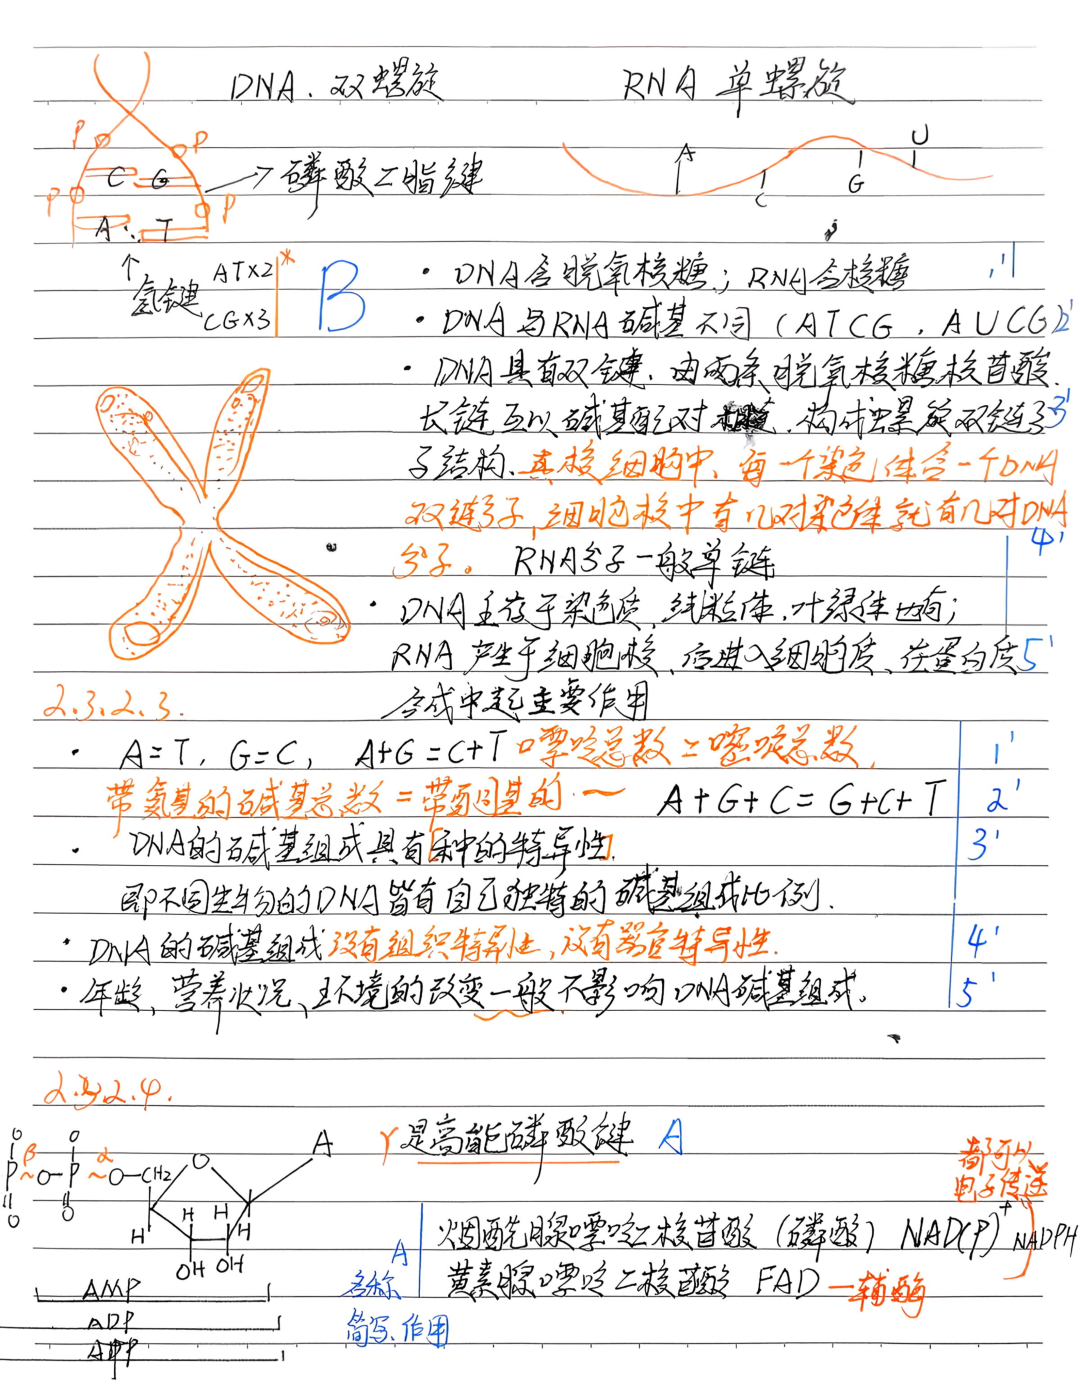 DNA.双螺旋 RNA 单螺旋
P P
C G
→磷酸二脂键
P P
A T
↑
氢键 AT×2 *
CG×3
A C G U
B
· DNA含脱氧核糖;RNA含核糖 1'
· DNA与RNA碱基不同(ATCG,AUCG) 2'
· DNA具有双键.由两条脱氧核糖核苷酸
长链互以碱基配对 构成螺旋双链分 3'
子结构、真核细胞中,每一个染色体含一个DNA
双链分子,细胞核中有几对染色体就有几对DNA
分子。RNA分子一般单链 4'
· DNA主存于染色质,线粒体,叶绿体也有;
RNA产生于细胞核、后进入细胞质、在蛋白质 5'
合成中起主要作用
2.3.2.3.
· A=T,G=C, A+G=C+T 嘌呤总数=嘧啶总数, 1'
带氨基的碱基总数=带酮基的·一 A+G+C=G+C+T 2'
· DNA的碱基组成具有[种的特异性] 3'
即不同生物的DNA皆有自己独特的碱基组成比例.
· DNA的碱基组成没有组织特异性,没有器官特异性. 4'
· 年龄、营养状况、环境的改变一般不影响DNA碱基组成。 5'
2.3.2.4.
γ是高能磷酸键 A
O O A
β α
P ~O-P ~O-CH2 O
O O
H H H H
OH OH
AMP
ADP
都可以
电子传递
烟酰腺嘌呤二核苷酸(磷酸) NAD(P)+ NADPH
黄素腺嘌呤二核苷酸 FAD —辅酶
A
名称
简写、作用